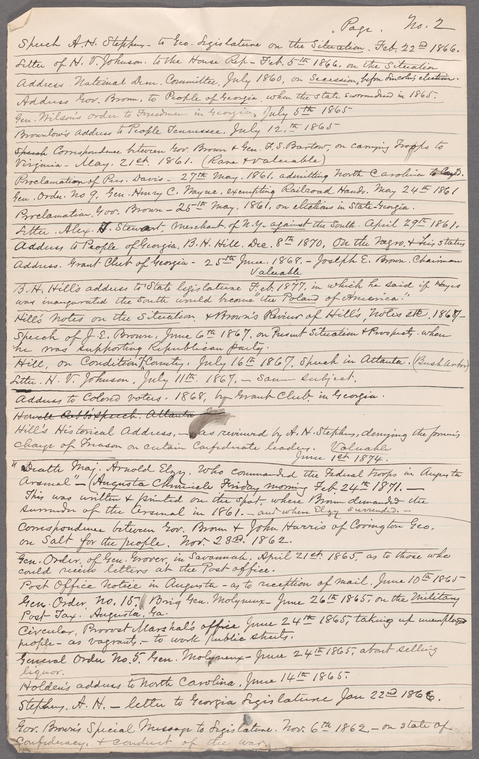 Page. No. 2
Speech A.H. Stephens - to Geo. Legislature on the Situation. Feb. 22nd 1866.
Letter of H.V. Johnson. to the House Rep - Feb. 5th 1866. on the Situation
Address National Dem. Committee, July 1860, on Secession, before Lincoln's election.
Address Gov. Brown, to People of Georgia, when the state surrendered in 1865.
Gen. Wilson's order to Freedmen in Georgia, July 5th 1865
Brownlow's Address to People Tennessee, July 12th 1865
Speech Correspondence between Gov. Brown & Gen. F.S. Bartow, on carrying Troops to
Virginia - May. 21st 1861. (Rare & valuable)
Proclamation of Pres. Davis - 27th May. 1861. admitting North Carolina to
Gen. Order No. 9, Gen. Henry C. Wayne, exempting Railroad Hands, May 24th 1861
Proclamation, Gov. Brown - 25th May. 1861, on elections in State Georgia.
Letter. Alex. Stewart, Merchant of N.Y. against the South April 29th 1861.
Address to People of Georgia, B.H. Hill, Dec. 8th 1870, On the Negro & his status
Address. Grant Club of Georgia - 25th June. 1868. - Joseph E. Brown. Chairman
Valuable
B.H. Hill's address to State Legislature Feb. 1877, in which he said if Hayes
was inaugurated the South would become "the Poland of America."
Hill's Notes on the Situation & Brown's Review of Hill's Notes etc. 1867-
Speech of J.E. Brown, June 6th 1867, on Present Situation & Prospects. when
he was supporting Republican party.
Hill, on Condition of Country, July 16th 1867. Speech in Atlanta. (Bush Arbor)
Letter. H.V. Johnson, July 11th 1867, - Same subject.
Address to Colored voters. 1868, by Grant Club in Georgia.
Howell speech. Atlanta
Hill's Historical Address, - as reviewed by A.H. Stephens, denying the former's
charge of Treason on certain Confederate leaders. Valuable
June 1st 1874.
"Death Maj. Arnold Elzey. Who commanded the Federal troops in Augusta
Arsenal" - (Augusta Chronicle Friday morning Feb 24th 1871.
This was written & printed on the spot where Brown demanded the
surrender of the Arsenal in 1861. - and when Elzy surrended. -
Correspondence between Gov. Brown & John Harris of Covington Geo.
on Salt for the people. Nov. 23rd. 1862.
Gen. Order, of Gen. Grover, in Savannah, April 21st 1865, as to those who
could receive letters at the Post office.
Post Office Notice in Augusta - as to reception of mail. June 10th 1865
Gen Order, No. 15. Brig Gen. Molyneux - June 26th 1865, on the Military
Post Tax. Augusta, Ga.
Circular, Provost Marshal's office June 24th 1865, taking up unemployed
people - as vagrants, - to work public streets.
General Order No. 5. Gen. Molyneux - June 24th 1865, about selling
liquor.
Holden's address to North Carolina, June 14th 1865.
Stephens, A.H. - letter to Georgia Legislature Jan 22nd 1866.
Gov. Brown's Special Message to Legislature. Nov. 6th 1862, - on state of
Confederacy, & conduct of the war.